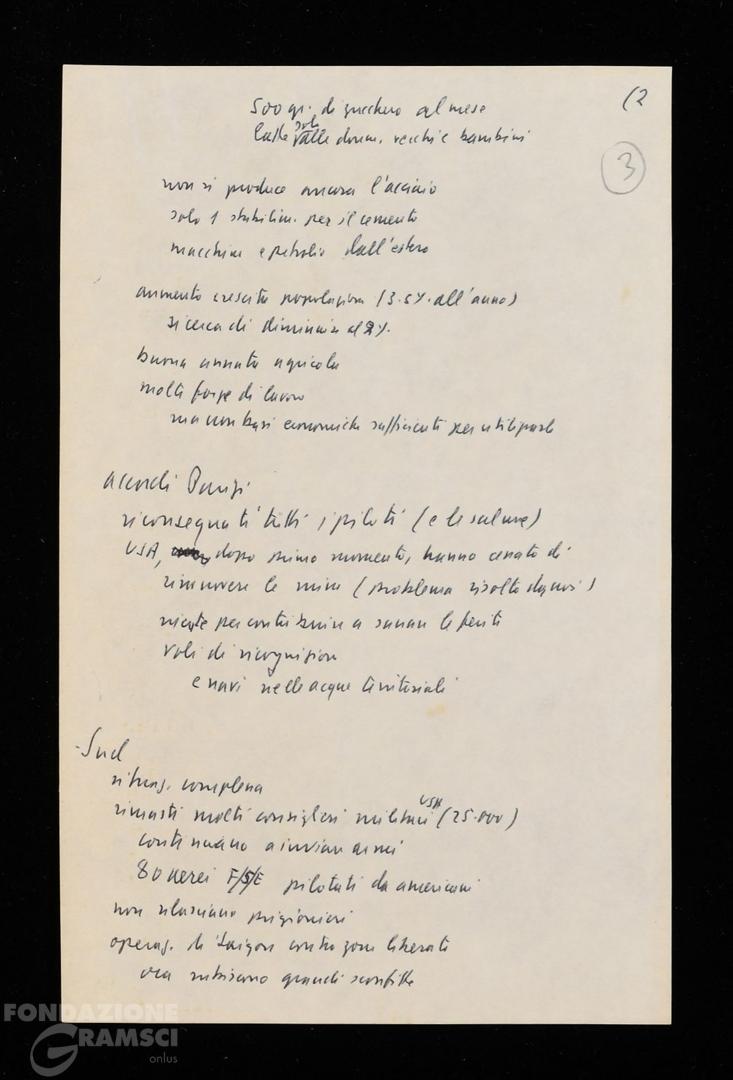 (2
3
500 gr. di zucchero al mese
latte solo alle donne, vecchi e bambini
non si produce ancora l'acciaio
solo 1 stabilim. per il cemento
macchine e petrolio dall'estero
aumento crescita popolazione (3.5%. all'anno)
si cerca di diminuire al 2%.
buona annata agricola
molte forze di lavoro
ma non basi economiche sufficienti per utilizzarle
accordi Parigi
riconsegnati tutti i piloti (e le salme)
USA, dopo primo momento, hanno cessato di
rimuovere le mine (problema risolto da noi)
niente per contribuire a sanare le ferite
voli di ricognizione
e navi nelle acque territoriali
- Sud
situaz. complessa
rimasti molti consiglieri militari USA (25.000)
continuano a inviare armi
80 aerei F/5/E pilotati da americani
non rilasciano prigionieri
operaz. di Saigon contro zone liberate
ora subiscono grandi sconfitte
FONDAZIONE
GRAMSCI
onlus